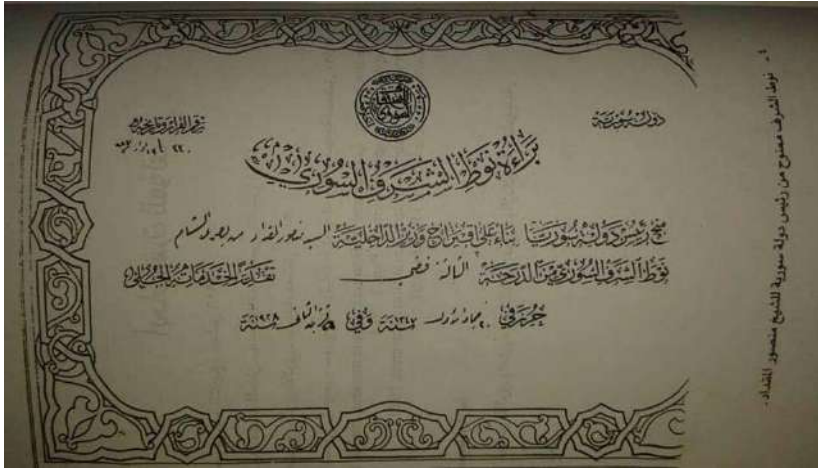 دولة سورية
رقم القرار وتاريخه
براءة نوط الشرف السوري
منح رئيس دولة سوريا بناء على اقتراح وزير الداخلية السيد منصور المقداد من بصرى الشام
نوط الشرف السوري من الدرجة الثالثة فضي تقديرا لخدماته الجلى
حرر في جمادى الاولى سنة ١٣٤٧ وفي تشرين الثاني سنة ١٩٢٨
٤ - نوط الشرف ممنوح من رئيس دولة سورية للشيخ منصور المقداد.